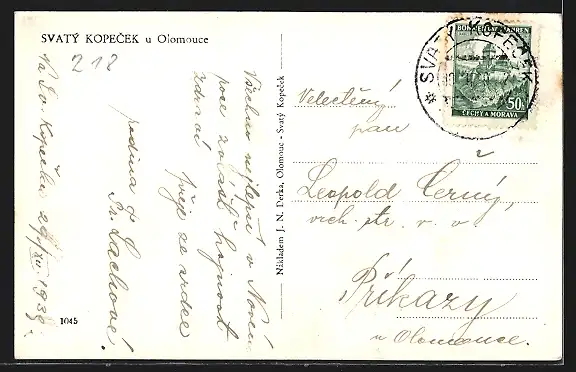 SVATÝ KOPEČEK u Olomouce
212
Všechno nejlepší v Novém
roce zvláště hojnost
zdraví
přeje ze srdce
rodina
Na Sv. Kopečku 29/XII. 1939.
1045
Nákladem J. N. Derka, Olomouc - Svatý Kopeček
BÖHMEN U. MÄHREN
50h
ČECHY A MORAVA
* SVATÝ KOPEČEK
Velectěný
pan
Leopold Černý,
vrch. str. v. v.
Příkazy
u Olomouce.